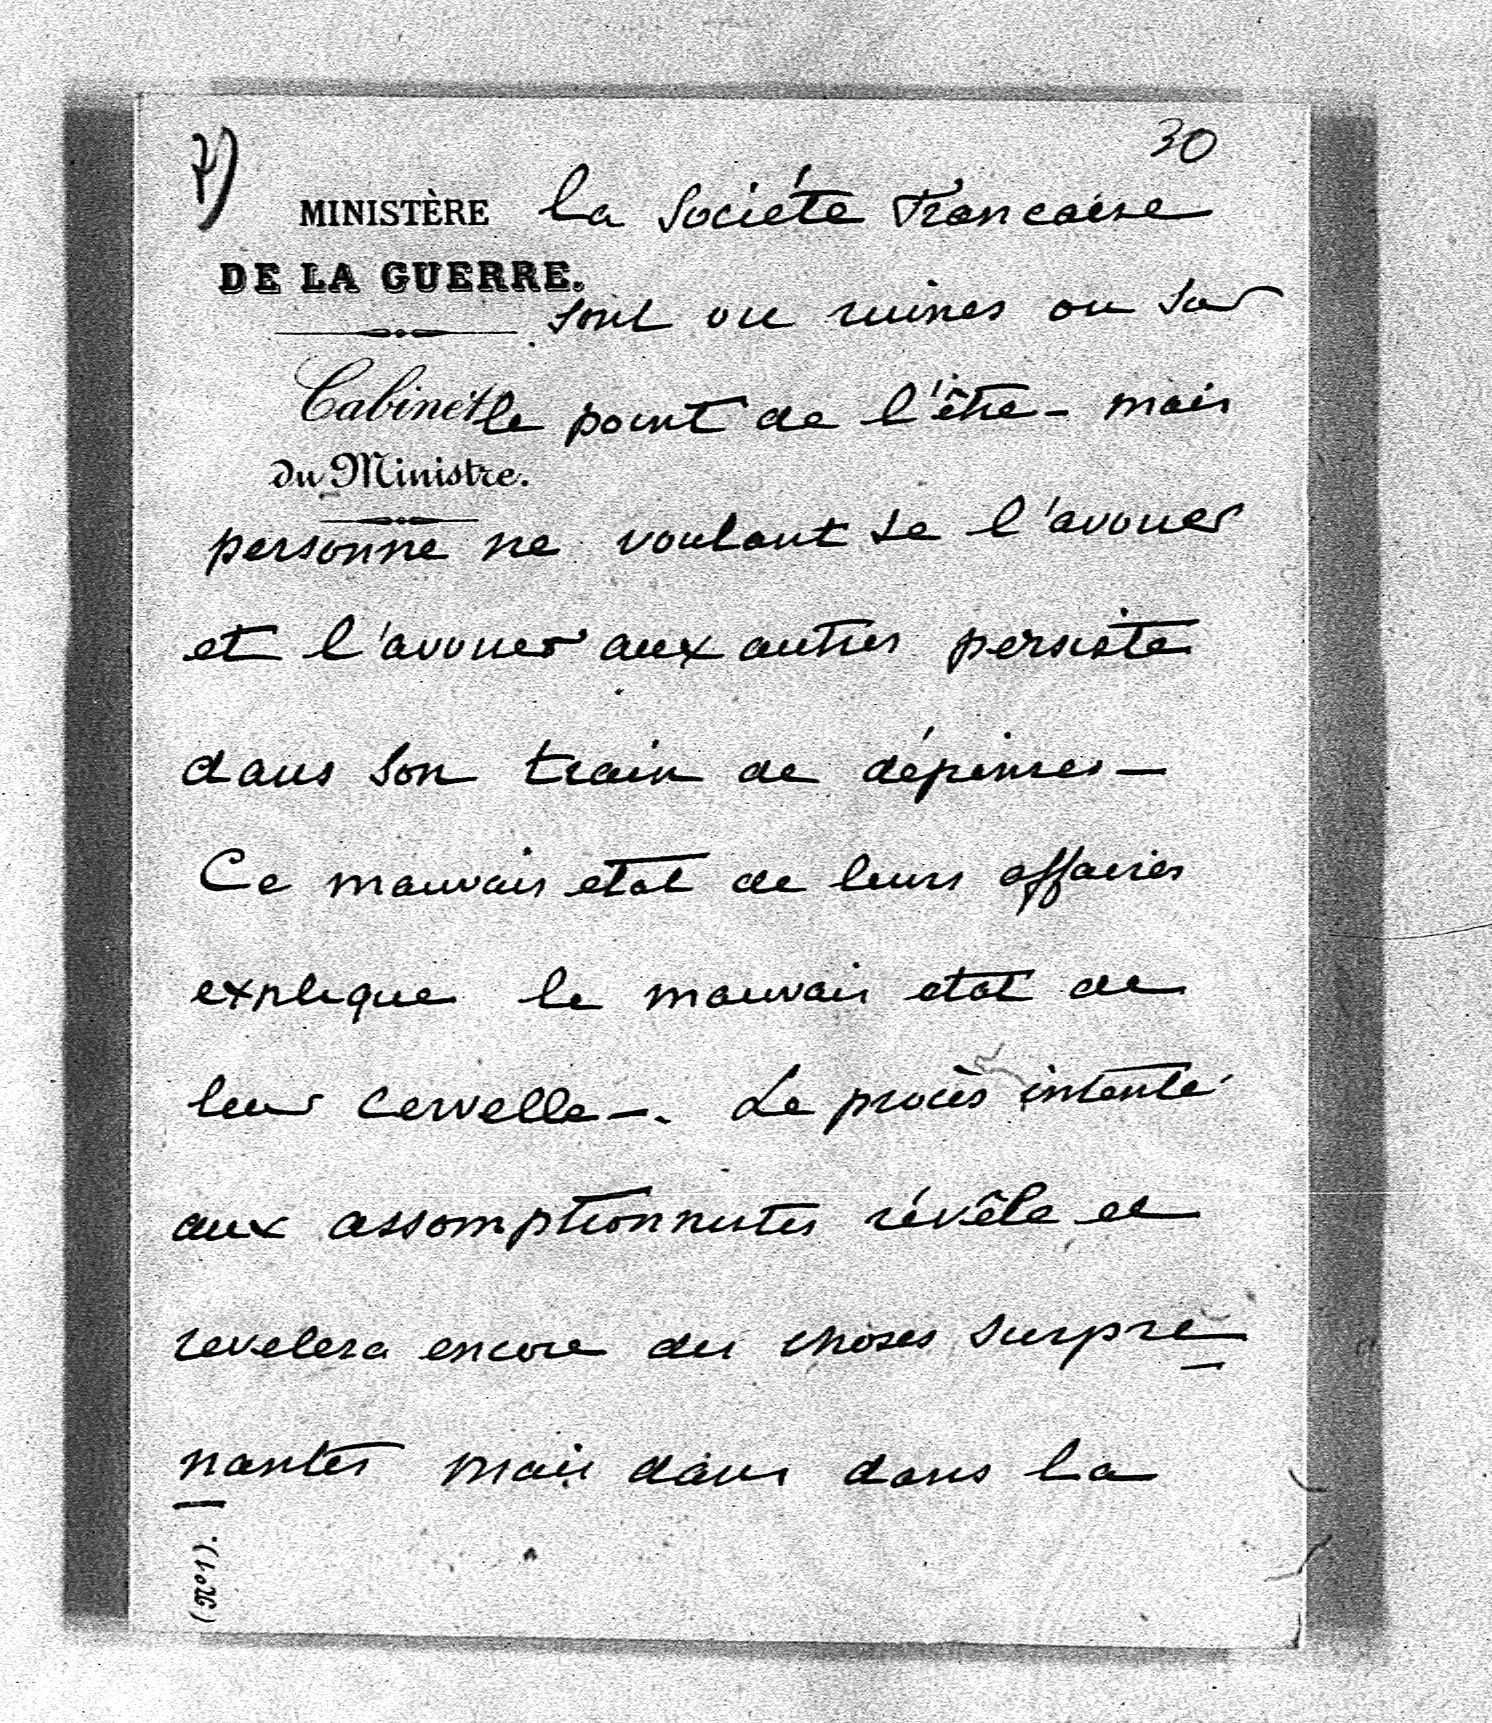 7)
30
MINISTÈRE
DE LA GUERRE.
Cabinet
du Ministre.
la Société Francaise
sont ou ruines ou sur
le point de l'être - mais
personne ne voulant se l'avouer
et l'avouer aux autres persiste
dans son train de dépenses -
Ce mauvais etat de leurs affaires
explique le mauvais etat de
leur cervelle -. Le procès intenté
aux assomptionnistes révêle et
revelera encore des choses surpre
nantes mais dans dans la
(No 1).